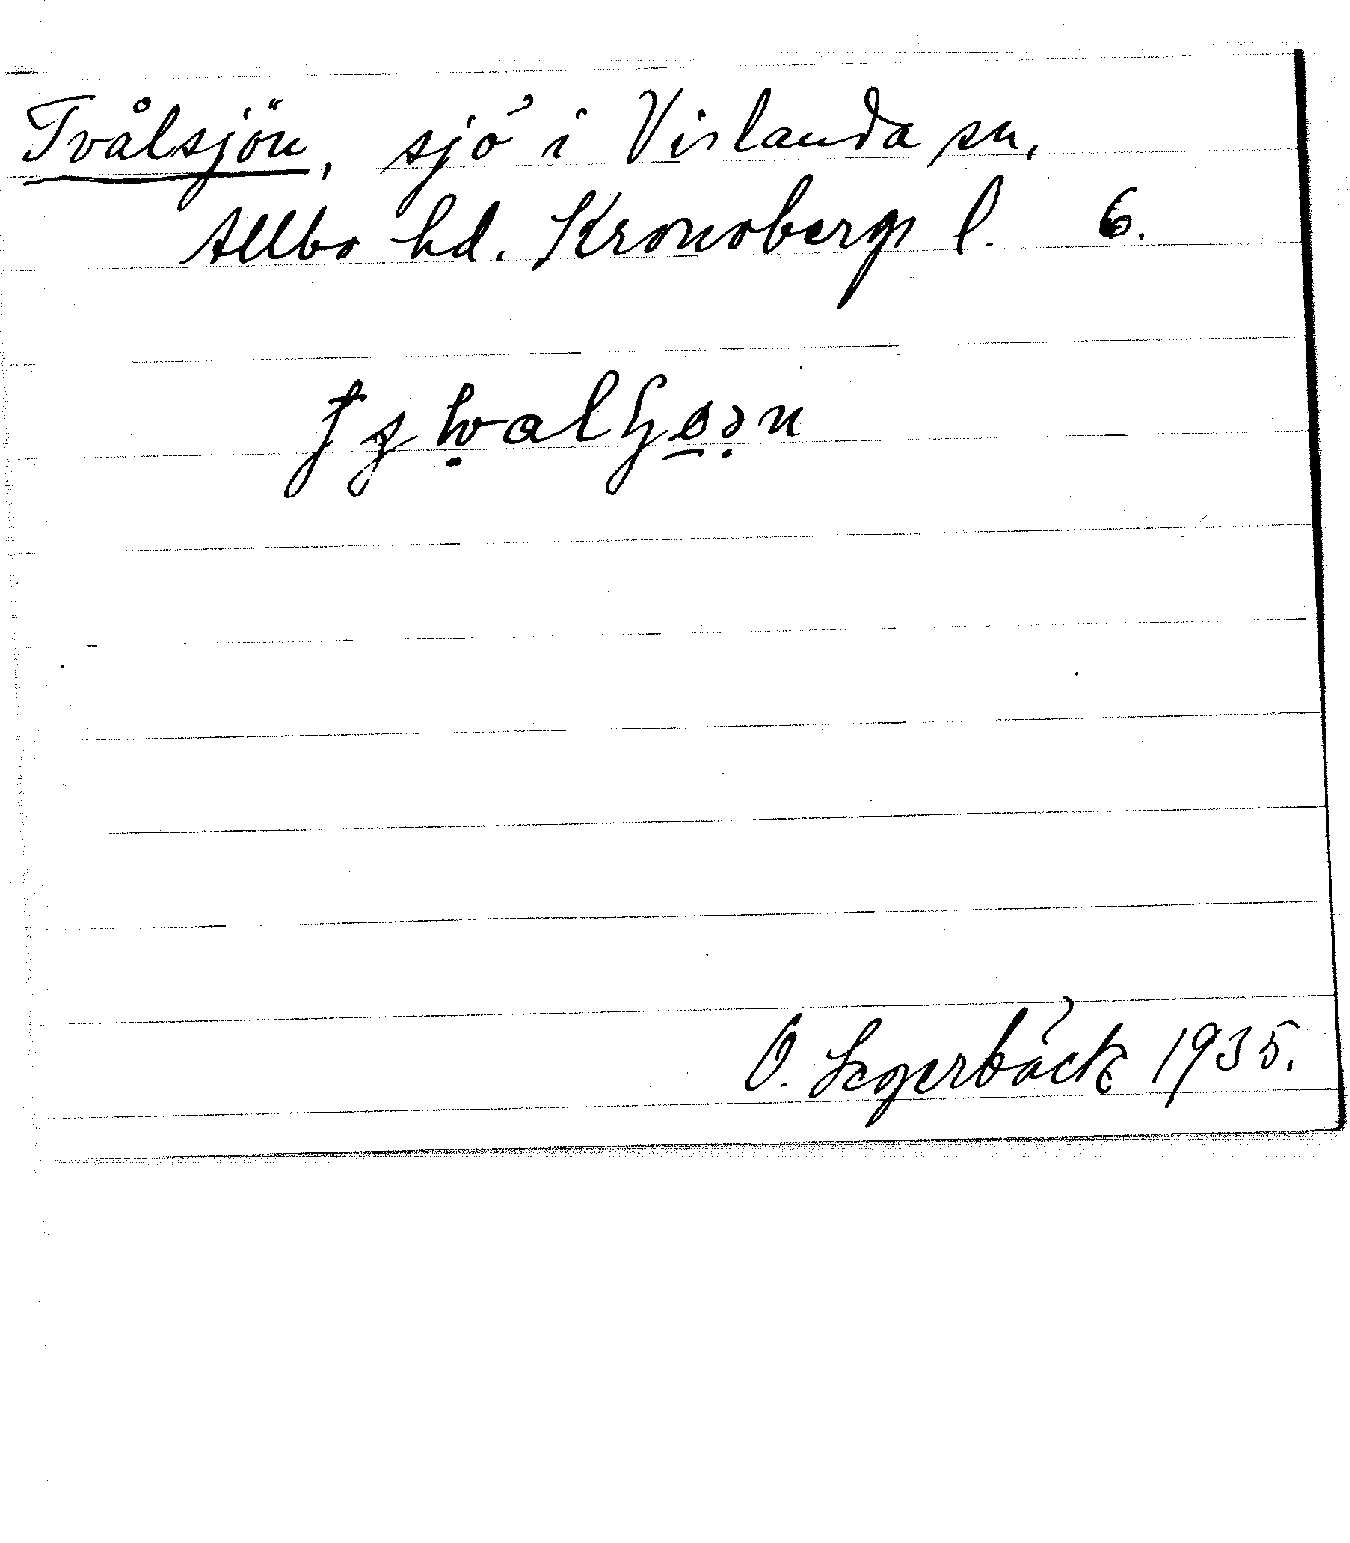 Tvålsjön, sjö i Vislanda sn,
Allbo hd. Kronobergs l. 6.
O. Segerbäck 1935.